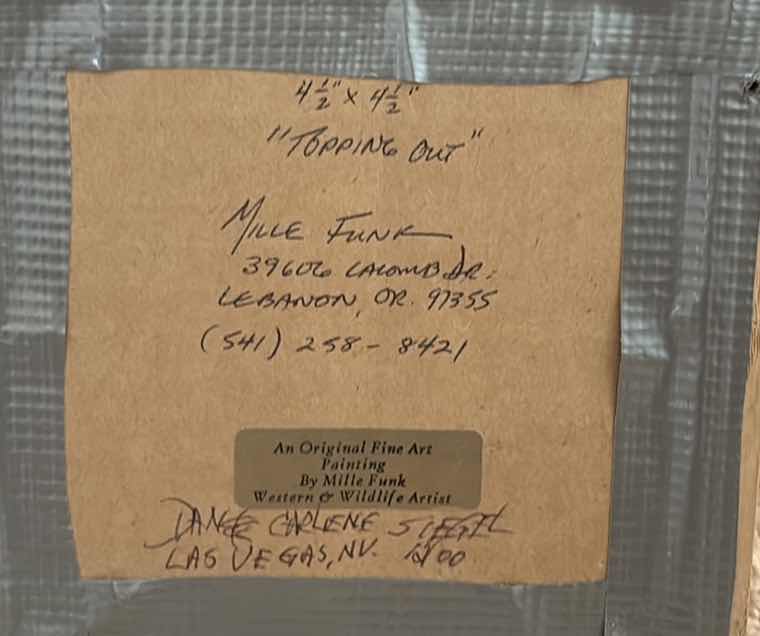 4 1/2" x 4 1/2"
"TOPPING OUT"
MILLE FUNK
39606 LACOMB DR.
LEBANON, OR. 97355
(541) 258-8421
An Original Fine Art
Painting
By Mille Funk
Western & Wildlife Artist
CARLENE SIEGEL
LAS VEGAS, NV.